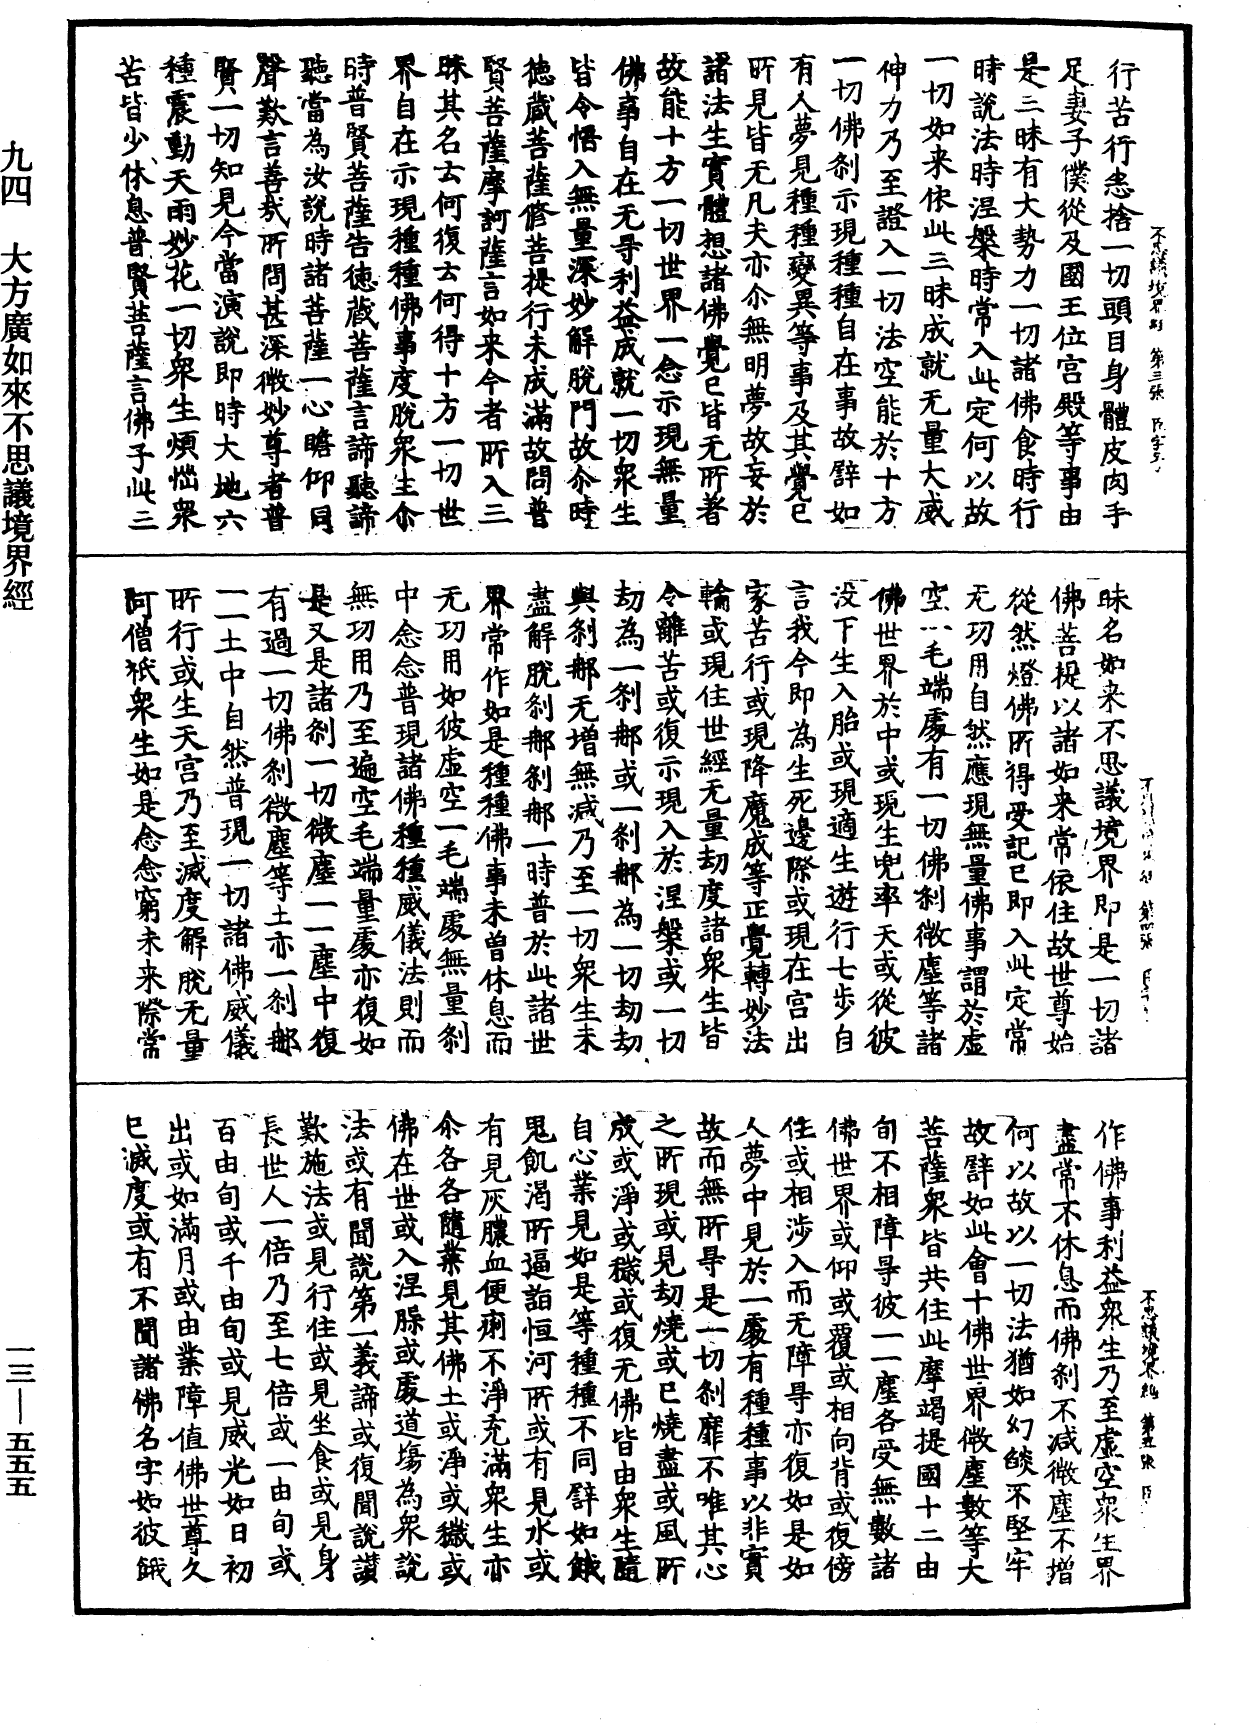 行苦行悉捨一切頭目身體皮肉手
足妻子僕從及國王位宫殿等事由
是三昧有大勢力一切諸佛食時行
時說法時涅槃時常入此定何以故
一切如来依此三昧成就无量大威
伸力乃至證入一切法空能於十方
一切佛刹示現種種自在事故譬如
有人夢見種種變異等事及其覺已
所見皆无凡夫亦尒無明夢故妄於
諸法生實體想諸佛覺已皆无所著
故能十方一切世界一念示現無量
佛事自在无㝵利益成就一切衆生
皆令悟入無量深妙解脫門故尒時
德藏菩薩修菩提行未成滿故問普
賢菩薩摩訶薩言如来今者所入三
昧其名云何復云何得十方一切世
界自在示現種種佛事度脫衆生尒
時普賢菩薩告德藏菩薩言諦聽諦
聽當為汝說時諸菩薩一心瞻仰同
聲歎言善哉所問甚深微妙尊者普
賢一切知見今當演說即時大地六
種震動天雨妙花一切衆生煩惱衆
苦皆少休息普賢菩薩言佛子此三
昧名如来不思議境界即是一切諸
佛菩提以諸如来常依住故世尊始
從然燈佛所得受記已即入此定常
无功用自然應現無量佛事謂於虛
空一毛端處有一切佛刹微塵等諸
佛世界於中或現生兜率天或從彼
没下生入胎或現適生遊行七步自
言我今即為生死邊際或現在宮出
家苦行或現降魔成等正覺轉妙法
輪或現住世經无量劫度諸衆生皆
令離苦或復示現入於涅槃或一切
劫為一刹那或一刹那為一切劫劫
與刹那无增無减乃至一切衆生未
盡解脫刹那刹那一時普於此諸世
界常作如是種種佛事未曾休息而
无功用如彼虛空一毛端處無量刹
中念念普現諸佛種種威儀法則而
無功用乃至遍空毛端量處亦復如
是又是諸刹一切微塵一一塵中復
有過一切佛刹微塵等土亦一刹那
一一土中自然普現一切諸佛威儀
所行或生天宮乃至滅度解脫无量
阿僧祇衆生如是念念窮未来際常
作佛事利益衆生乃至虛空衆生界
盡常不休息而佛刹不减微塵不增
何以故以一切法猶如幻燄不堅牢
故譬如此會十佛世界微塵數等大
菩薩衆皆共住此摩竭提國十二由
旬不相障㝵彼一一塵各受無數諸
佛世界或仰或覆或相向背或復傍
住或相涉入而无障㝵亦復如是如
人夢中見於一處有種種事以非實
故而無所㝵是一切刹靡不唯其心
之所現或見劫燒或已燒盡或風所
成或淨或穢或復无佛皆由衆生隨
自心業見如是等種種不同譬如餓
鬼飢渴所逼詣恒河所或有見水或
有見灰膿血便痢不淨充滿衆生亦
尒各各隨業見其佛土或淨或穢或
佛在世或入涅槃或處道場為衆說
法或有聞說第一義諦或復聞說讃
歎施法或見行住或見坐食或見身
長世人一倍乃至七倍或一由旬或
百由旬或千由旬或見威光如日初
出或如滿月或由業障值佛世尊久
已滅度或有不聞諸佛名字如彼餓
九四 大方廣如來不思議境界經
一三—五五五